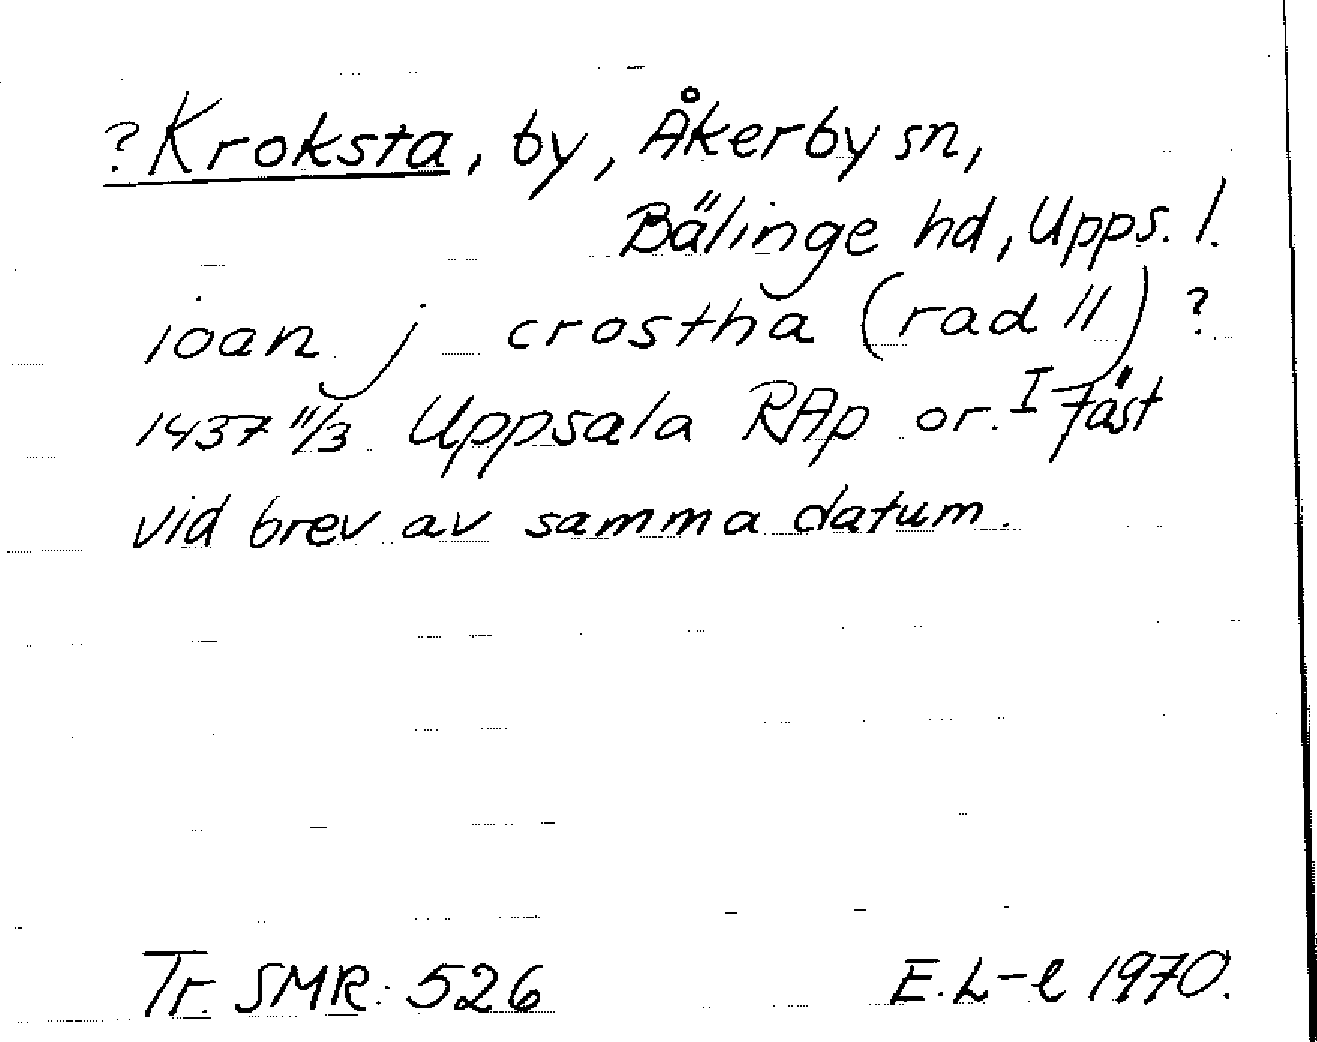 ?Kroksta, by, Åkerby sn,
Bälinge hd, Upps. l.
ioan j crostha (rad 11) ?
1437 11/3 Uppsala RAp or. I Fäst
vid brev av samma datum.
Tr. SMR: 526 E. L-l 1970.